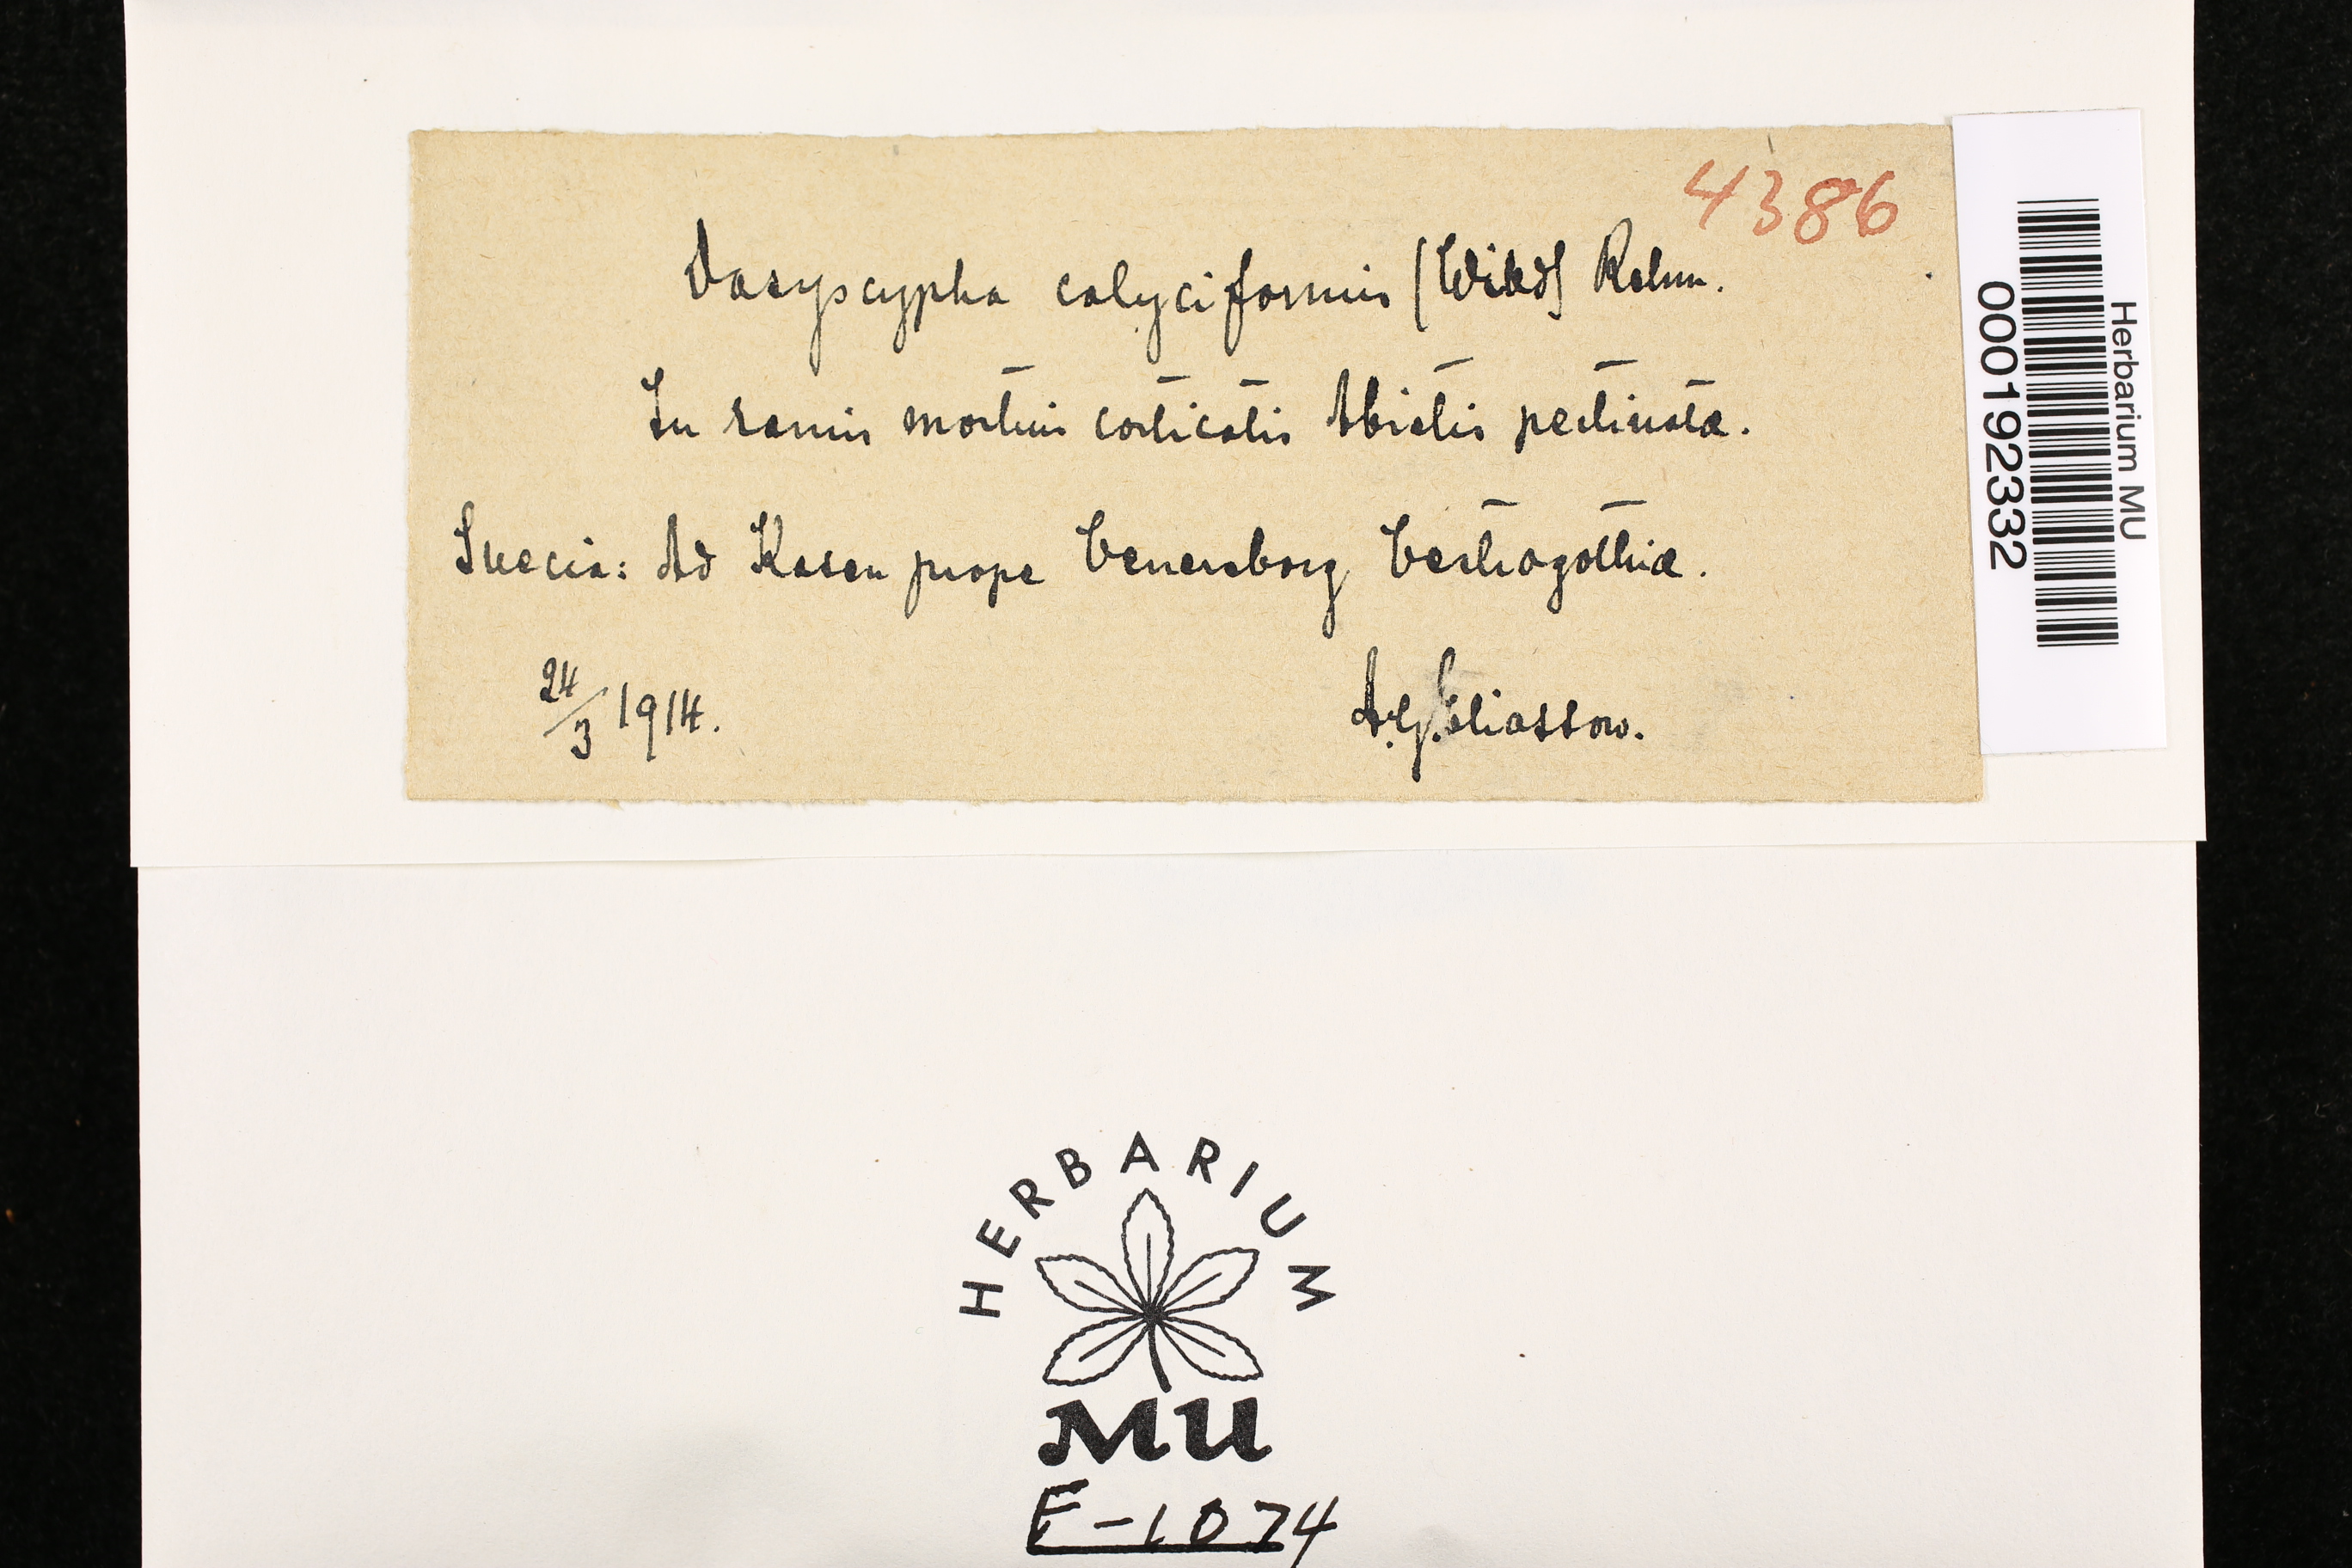 4386
Dasyscypha calyciformis (Willd) Rehm.
In ramis mortuis corticatis Abietis pectinatæ.
Suecia: Ad Kasen prope Venersborg Vestrogothiæ.
24/3 1914.
A.G. Eliasson.
Herbarium MU
000192332
HERBARIUM
MU
F-1074